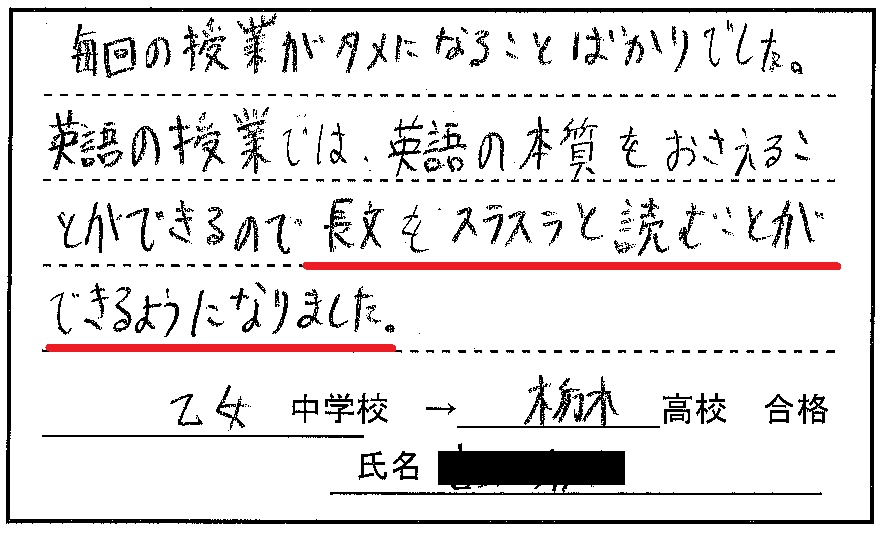 毎回の授業がタメになることばかりでした。
英語の授業では、英語の本質をおさえるこ
とができるので長文をスラスラと読むことが
できるようになりました。
乙女 中学校 → 栃木 高校 合格
氏名